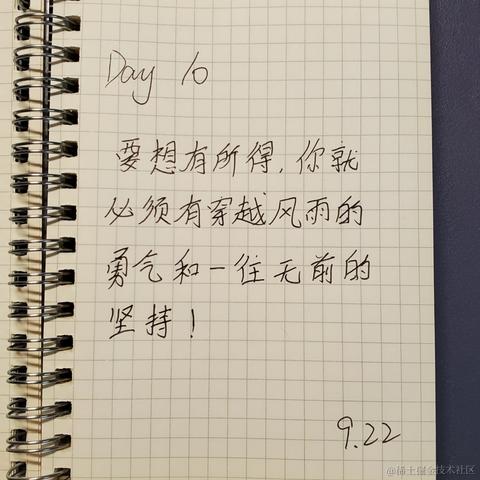 Day 10
要想有所得,你就
必须有穿越风雨的
勇气和一往无前的
坚持!
9.22
@稀土掘金技术社区